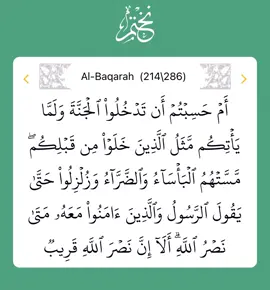 نختم
Al-Baqarah (214\286)
أَمۡ حَسِبۡتُمۡ أَن تَدۡخُلُواْ ٱلۡجَنَّةَ وَلَمَّا
يَأۡتِكُم مَّثَلُ ٱلَّذِينَ خَلَوۡاْ مِن قَبۡلِكُمۖ
مَّسَّتۡهُمُ ٱلۡبَأۡسَآءُ وَٱلضَّرَّآءُ وَزُلۡزِلُواْ حَتَّىٰ
يَقُولَ ٱلرَّسُولُ وَٱلَّذِينَ ءَامَنُواْ مَعَهُۥ مَتَىٰ
نَصۡرُ ٱللَّهِۗ أَلَآ إِنَّ نَصۡرَ ٱللَّهِ قَرِيبٞ